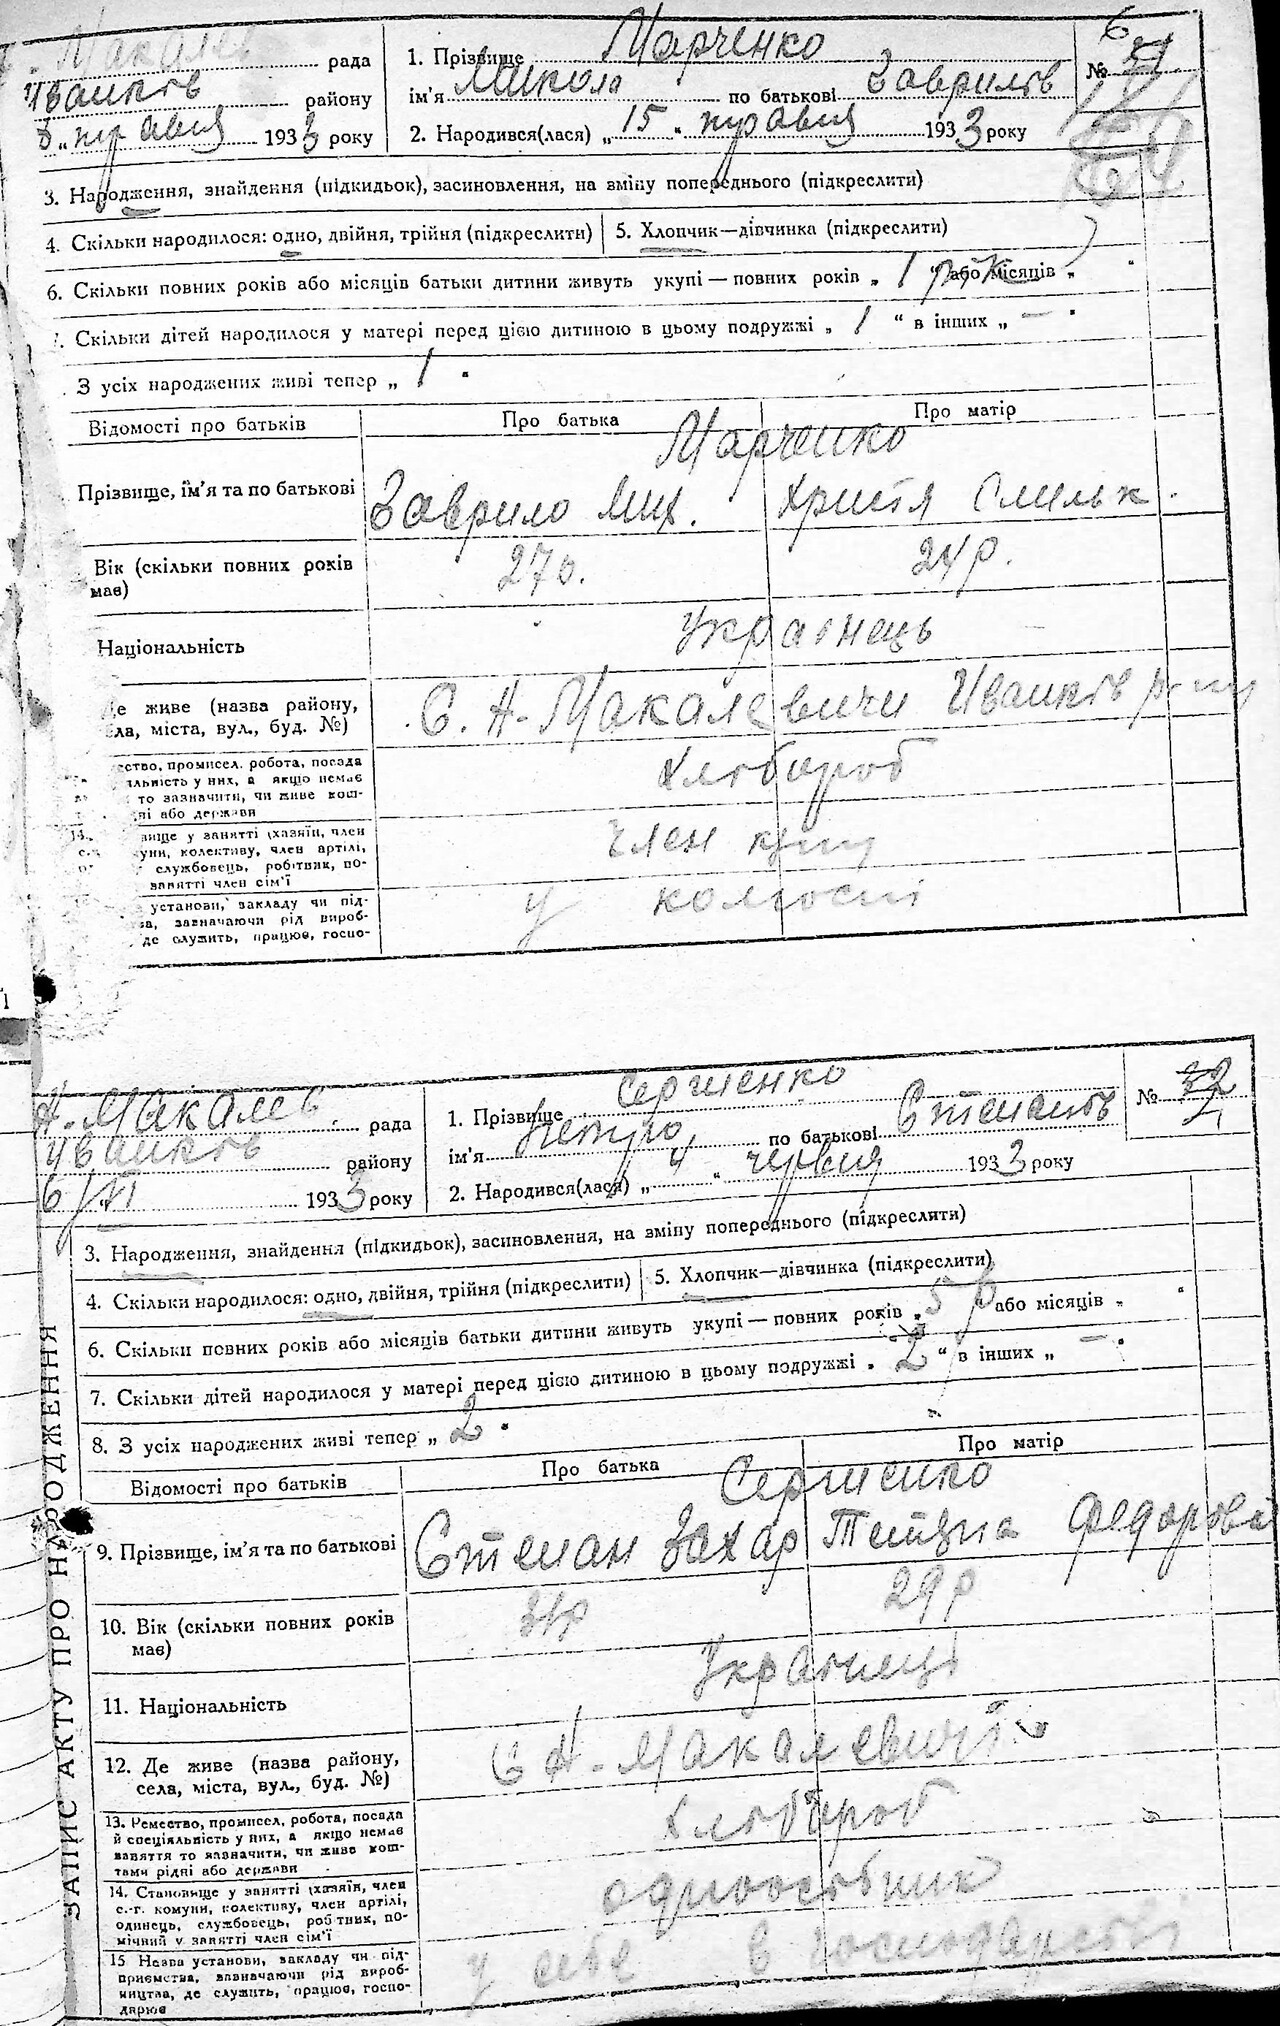 Макалев рада
Іванків району
8 „ травня 1933 року
1. Прізвище Марченко
ім'я Микола по батькові Гаврилів
2. Народився(лася) „ 15 " травня 1933 року
№ 31
6
3. Народження, знайдення (підкидьок), засиновлення, на зміну попереднього (підкреслити)
4. Скільки народилося: одно, двійня, трійня (підкреслити)
5. Хлопчик—дівчинка (підкреслити)
6. Скільки повних років або місяців батьки дитини живуть укупі — повних років „ 1 рік або місяців „ "
7. Скільки дітей народилося у матері перед цією дитиною в цьому подружжі „ 1 " в інших „ — "
З усіх народжених живі тепер „ 1 "
Відомості про батьків
Про батька
Про матір
Марченко
Прізвище, ім'я та по батькові
Гаврило Мих.
Христя
Вік (скільки повних років має)
27
24 р.
Національність
Українець
Де живе (назва району,
села, міста, вул., буд. №)
С. Н-Макалевичи Іванків р-ну
ство, промисел. робота, посада
яльність у них, а якщо немає
то зазначити, чи живе кош-
ні або держави
Хлібороб
14. вище у занятті (хазяїн, член
уни, колективу, член артілі,
службовець, робітник, по-
занятті член сім'ї
член
установи, закладу чи під-
ва, зазначаючи рід вироб-
де служить, працює, госпо-
у колгоспі
ЗАПИС АКТУ ПРО НАРОДЖЕННЯ
Н-Макалев. рада
Іванків району
6/VI 1933 року
1. Прізвище Сергіенко
ім'я Петро по батькові Степанів
2. Народився(лася) „ 4 " червня 1933 року
№ 32
3. Народження, знайдення (підкидьок), засиновлення, на зміну попереднього (підкреслити)
4. Скільки народилося: одно, двійня, трійня (підкреслити)
5. Хлопчик—дівчинка (підкреслити)
6. Скільки повних років або місяців батьки дитини живуть укупі — повних років „ 5 р або місяців „ "
7. Скільки дітей народилося у матері перед цією дитиною в цьому подружжі „ 2 " в інших „ — "
8. З усіх народжених живі тепер „ 2 "
Відомості про батьків
Про батька
Про матір
Сергіенко
9. Прізвище, ім'я та по батькові
Степан Захар
Тетяна Федоровна
10. Вік (скільки повних років
має)
31р
29р
11. Національність
Українці
12. Де живе (назва району,
села, міста, вул., буд. №)
С Н-Макалевичі
13. Ремество, промисел, робота, посада
й спеціяльність у них, а якщо немає
заняття то зазначити, чи живе кош-
тами рідні або держави
Хлібороб
14. Становище у занятті (хазяїн, член
с.-г. комуни, колективу, член артілі,
одинець, службовець, робітник, по-
мічний у занятті член сім'ї
одноосібник
15 Назва установи, закладу чи під-
приємства, зазначаючи рід вироб-
ництва, де служить, працює, госпо-
дарює
у себе в господарстві